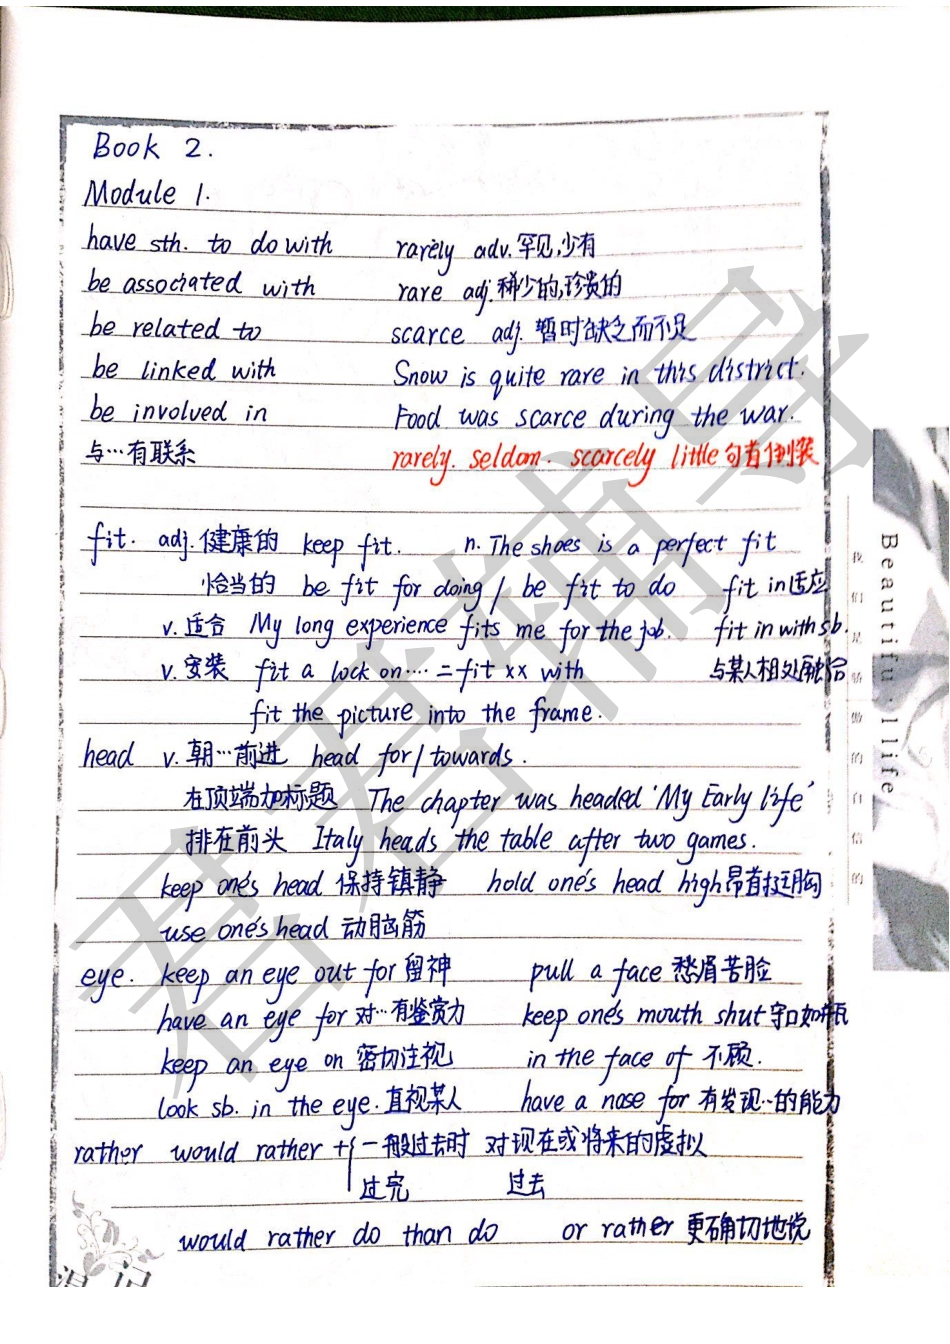 Book 2.
Module 1.
have sth. to do with rarely adv. 罕见,少有
be associated with rare adj. 稀少的,珍贵的
be related to scarce adj. 暂时缺乏而不足
be linked with Snow is quite rare in this district.
be involved in Food was scarce during the war.
与…有联系 rarely. seldom. scarcely little 句首倒装
fit. adj. 健康的 keep fit. n. The shoes is a perfect fit
恰当的 be fit for doing / be fit to do fit in 适应
v. 适合 My long experience fits me for the job. fit in with sb.
v. 安装 fit a lock on… = fit xx with 与某人相处融洽
fit the picture into the frame.
head v. 朝…前进 head for / towards.
在顶端加标题 The chapter was headed 'My Early life'
排在前头 Italy heads the table after two games.
keep one's head 保持镇静 hold one's head high 昂首挺胸
use one's head 动脑筋
eye. keep an eye out for 留神 pull a face 愁眉苦脸
have an eye for 对…有鉴赏力 keep one's mouth shut 守口如瓶
keep an eye on 密切注视 in the face of 不顾.
look sb. in the eye. 直视某人 have a nose for 有发现…的能力
rather would rather + 一般过去时 对现在或将来的虚拟
过完 过去
would rather do than do or rather 更确切地说
Beautifu·llife
我们是骄傲的自信的
君君辅导